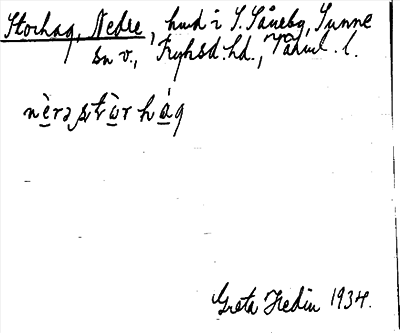 Storhag, Nedre, hmd i S. Såneby, Sunne
sn v., Fryksd. hd., Värml. l.
nèrə stòr hág
Greta Hedin 1934.